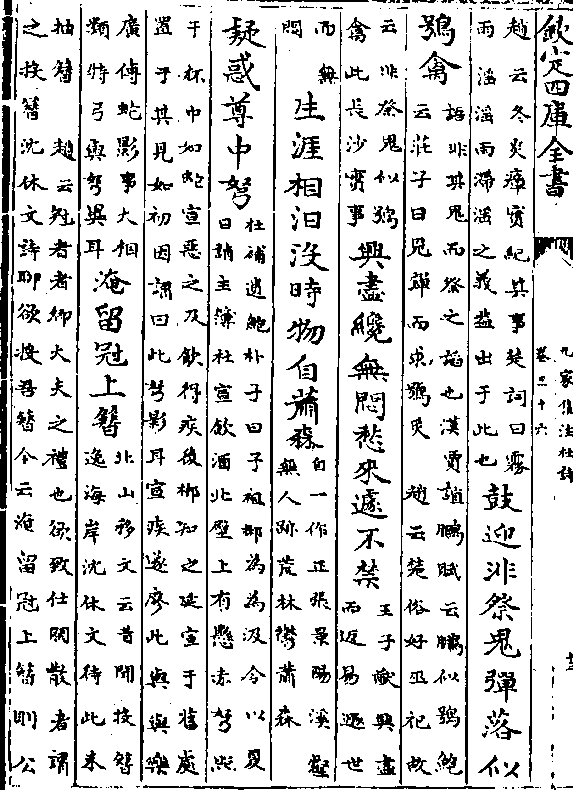 欽定四庫全書
九家集注杜詩
卷三十六
趙云冬炎瘴實紀其事楚詞曰霧
雨淫淫雨滯淫之義蓋出于此也
鼓迎非祭鬼彈落似
鴞禽
語非其鬼而祭之諂也漢賈誼鵩賦云鵩似鴞鮑
云莊子曰見彈而求鴞炙 趙云楚俗好巫祀故
云非祭鬼似鴞
禽此長沙實事
興盡纔無悶愁來遽不禁
王子猷興盡
而返易遯世
而無
悶
生涯相汨没時物自蕭森
自一作正張景陽溪壑
無人跡荒林鬱蕭森
疑惑尊中弩
杜補遺鮑朴子曰予祖郴為為汲令以夏
日請主簿杜宣飲酒北壁上有懸赤弩照
于杯中如蛇宣惡之及飲得疾後郴知之延宣于舊處
置于其見如初因謂曰此弩影耳宣疾遂瘳此與與樂
廣傅蛇影事大相
類特弓與弩異耳
淹留冠上簪
北山移文云昔聞投簪
逸海岸沈休文待此未
抽簪 趙云冠者者卿大夫之禮也欲致仕閒散者謂
之投簪沈休文詩聊欲投吾簪今云淹留冠上簪則公